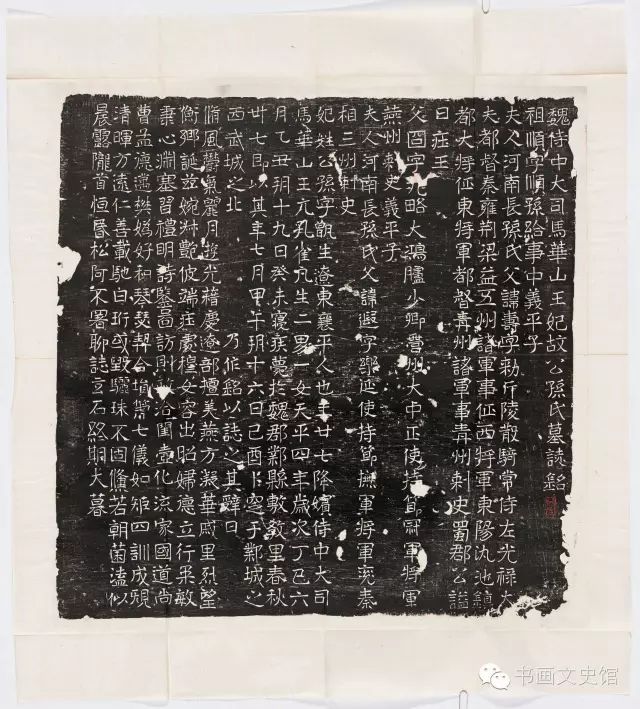 魏侍中大司馬華山王妃故公孫氏墓誌銘
祖順字順孫給事中義平子
夫人河南長孫氏父諱壽字勑斤陵散騎常侍左光祿大
夫都督秦雍荊梁益五州諸軍事征西將軍東陽九池鎮
都大將征東將軍都督青州諸軍事青州刺史蜀郡公謚
曰莊王
父冏字九略大鴻臚少卿營州大中正使持節冠軍將軍
燕州刺史義平子
夫人河南長孫氏父諱遐字樂延使持節撫軍將軍兗秦
相三州刺史
妃姓公孫字甑生遼東襄平人也年廿七降嬪侍中大司
馬華山王元孔雀凡生二男一女天平四年歲次丁巳六
月乙丑朔十九日癸未寢疾薨於魏郡鄴縣敷教里春秋
卅七即以其年七月甲午朔十六日己酉卜窆于鄴城之
西武城之北 乃作銘以誌之其辭曰
脩風鬱氣麗月遊光藉慶遼部擅美燕方凝華戚里烈望
衡鄉誕茲婉淑艷彼端莊處穆女容出昭婦德立行柔敏
秉心淵塞習禮明詩鑒圖訪則政洽閨壼化流家國道尚
曹孟德邁樊嬀好和琴瑟契合塤箎七儀如矩四訓成規
清暉方遠仁善載馳白珩或毀驪珠不固條若朝菌溘似
晨露隴首恒昏松阿不署聊誌玄石終期大暮
书画文史馆